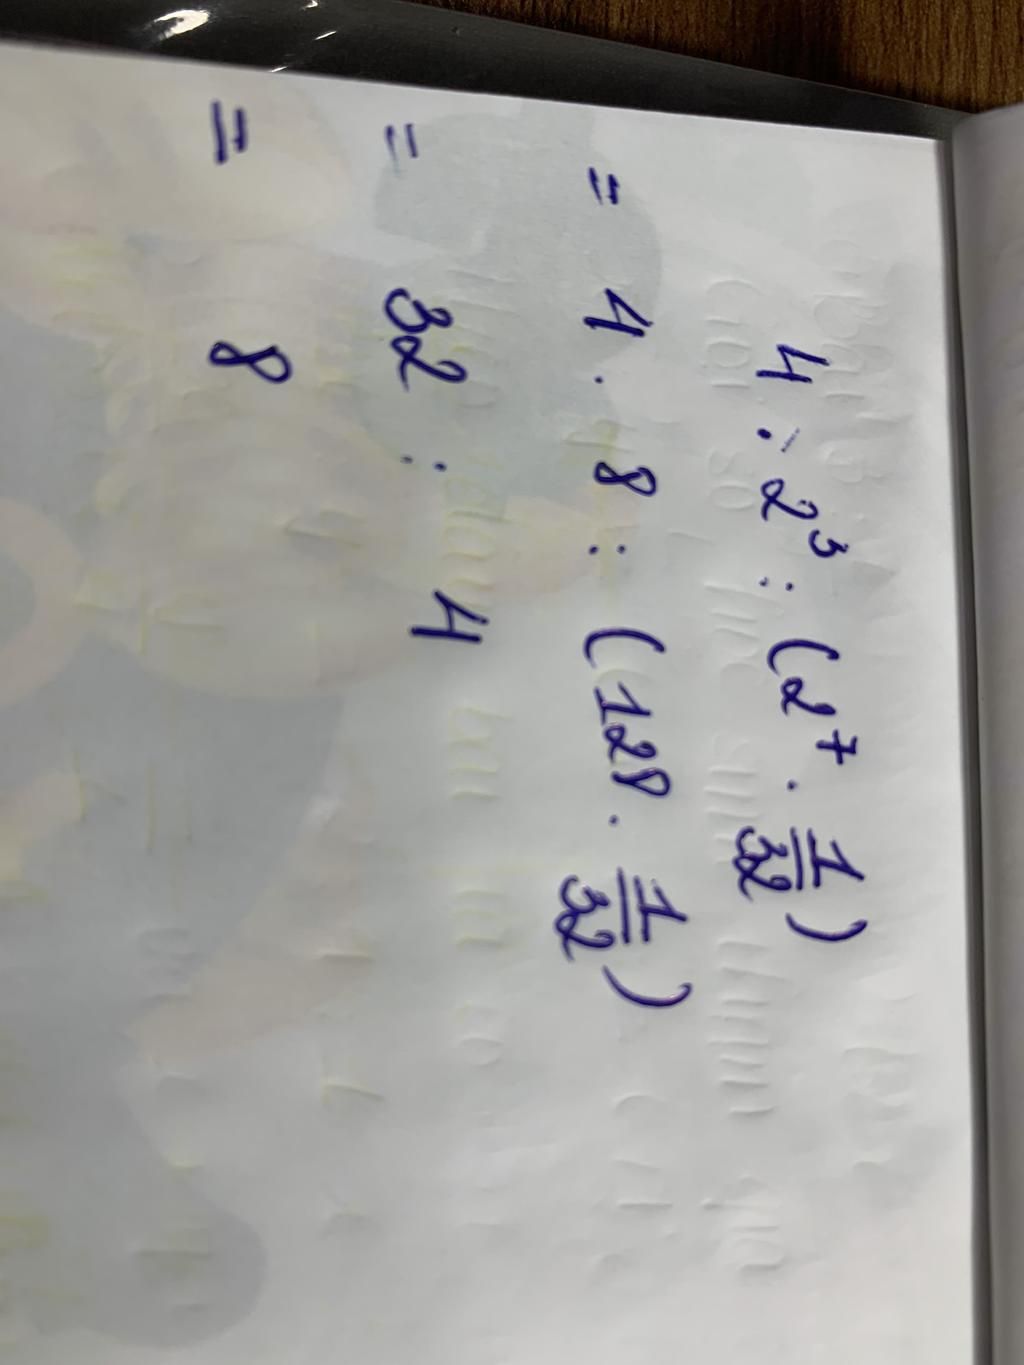 4 . 2³ : (2⁷ . 1/32)
= 4 . 8 : (128 . 1/32)
= 32 : 4
= 8